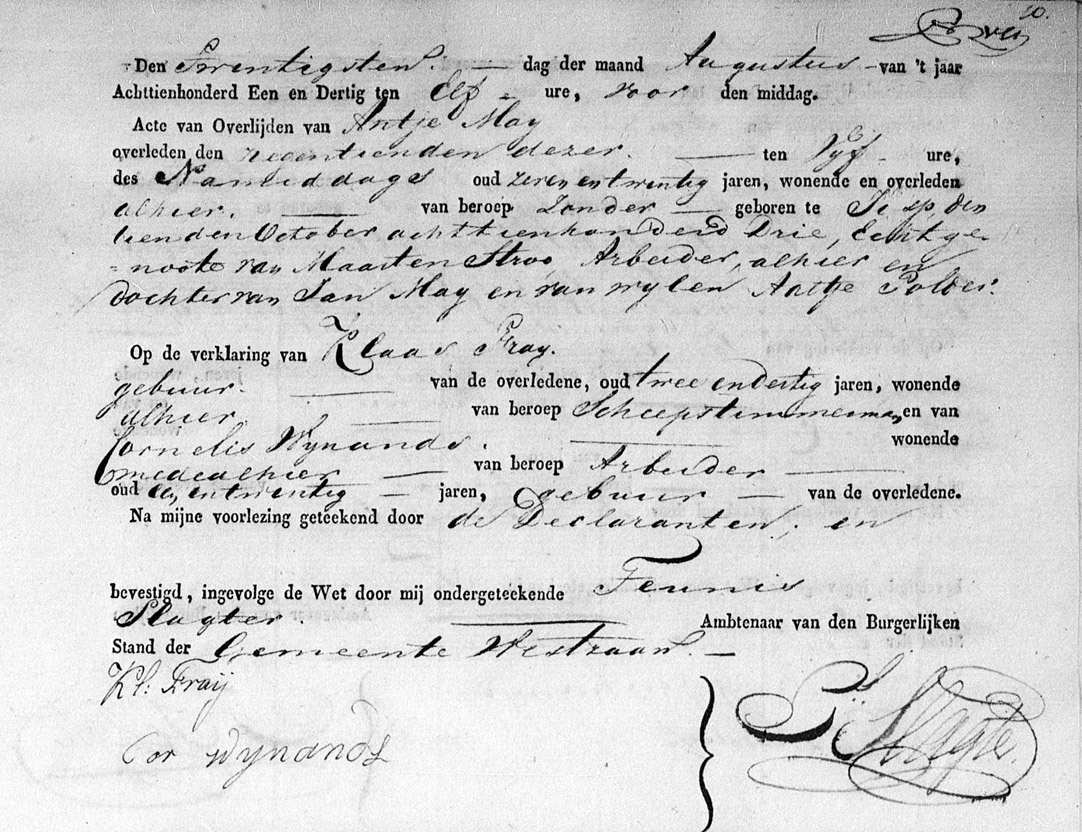 10.
Den Twentigsten. dag der maand Augustus van 't jaar
Achttienhonderd Een en Dertig ten Elf ure, voor den middag.
Acte van Overlijden van Antje May
overleden den negentienden dezer. ten Vyf ure,
des Namiddags oud zeven en twentig jaren, wonende en overleden
alhier. van beroep Zonder geboren te Jisp, den
tienden October achttienhonderd Drie, Echtge-
-noote van Maarten Stroo Arbeider, alhier en
dochter van Jan May en van wylen Aatje Polver.
Op de verklaring van Klaas Fray.
gebuur. van de overledene, oud twee en dertig jaren, wonende
alhier van beroep Scheepstimmerman, en van
Cornelis Wynands. wonende
mede alhier van beroep Arbeider
oud een en twentig jaren, gebuur van de overledene.
Na mijne voorlezing geteekend door de Declaranten, en
bevestigd, ingevolge de Wet door mij ondergeteekende Teunis
Slagter. Ambtenaar van den Burgerlijken
Stand der Gemeente Westzaan.
Kl: Fraij
Cor Wynands
T: Slagter.